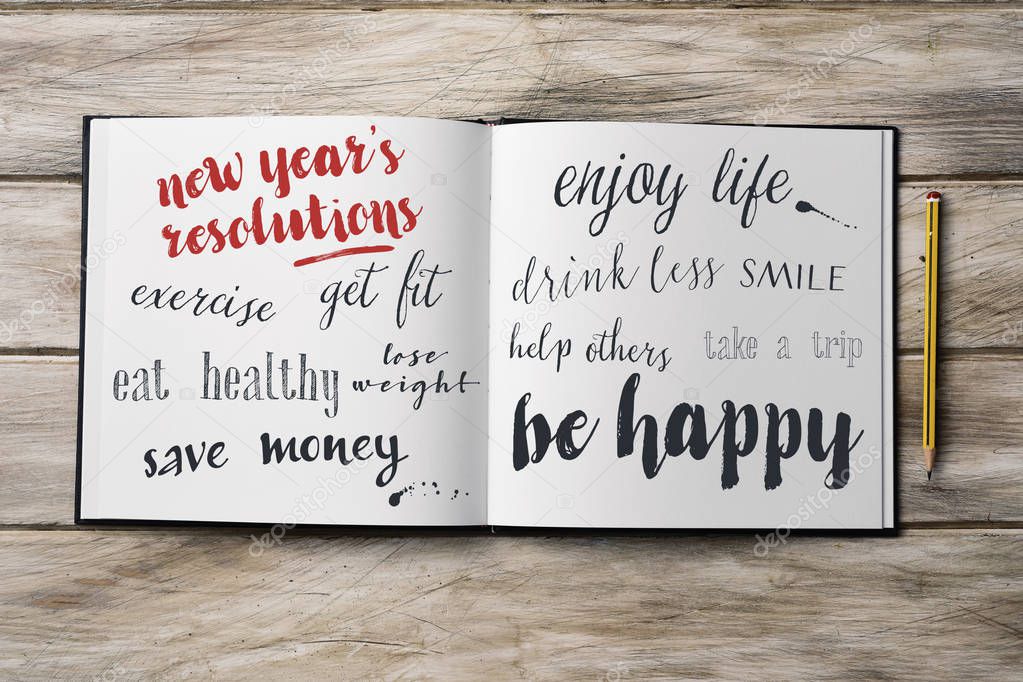 new year's
resolutions
exercise get fit
eat healthy lose weight
save money
enjoy life
drink less SMILE
help others take a trip
be happy
depositphotos